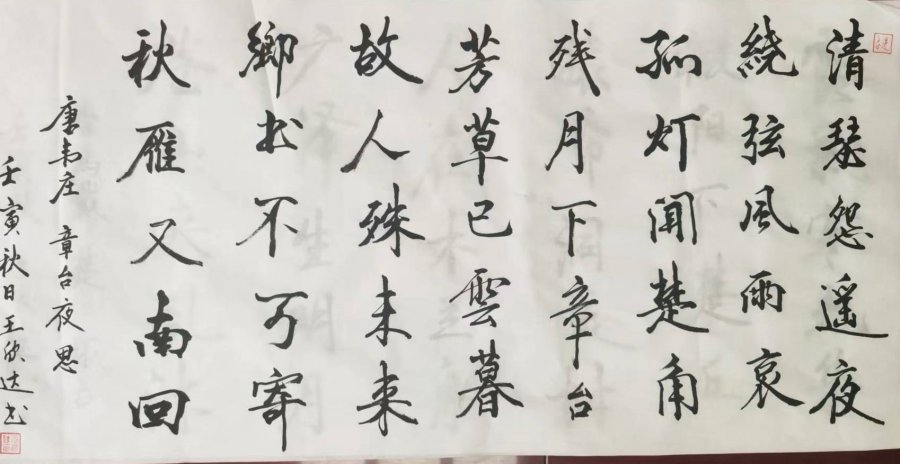 清瑟怨遥夜
绕弦风雨哀
孤灯闻楚角
残月下章台
芳草已雲暮
故人殊未来
鄉书不可寄
秋雁又南回
唐韦庄 章台夜思
壬寅秋日王欣达书